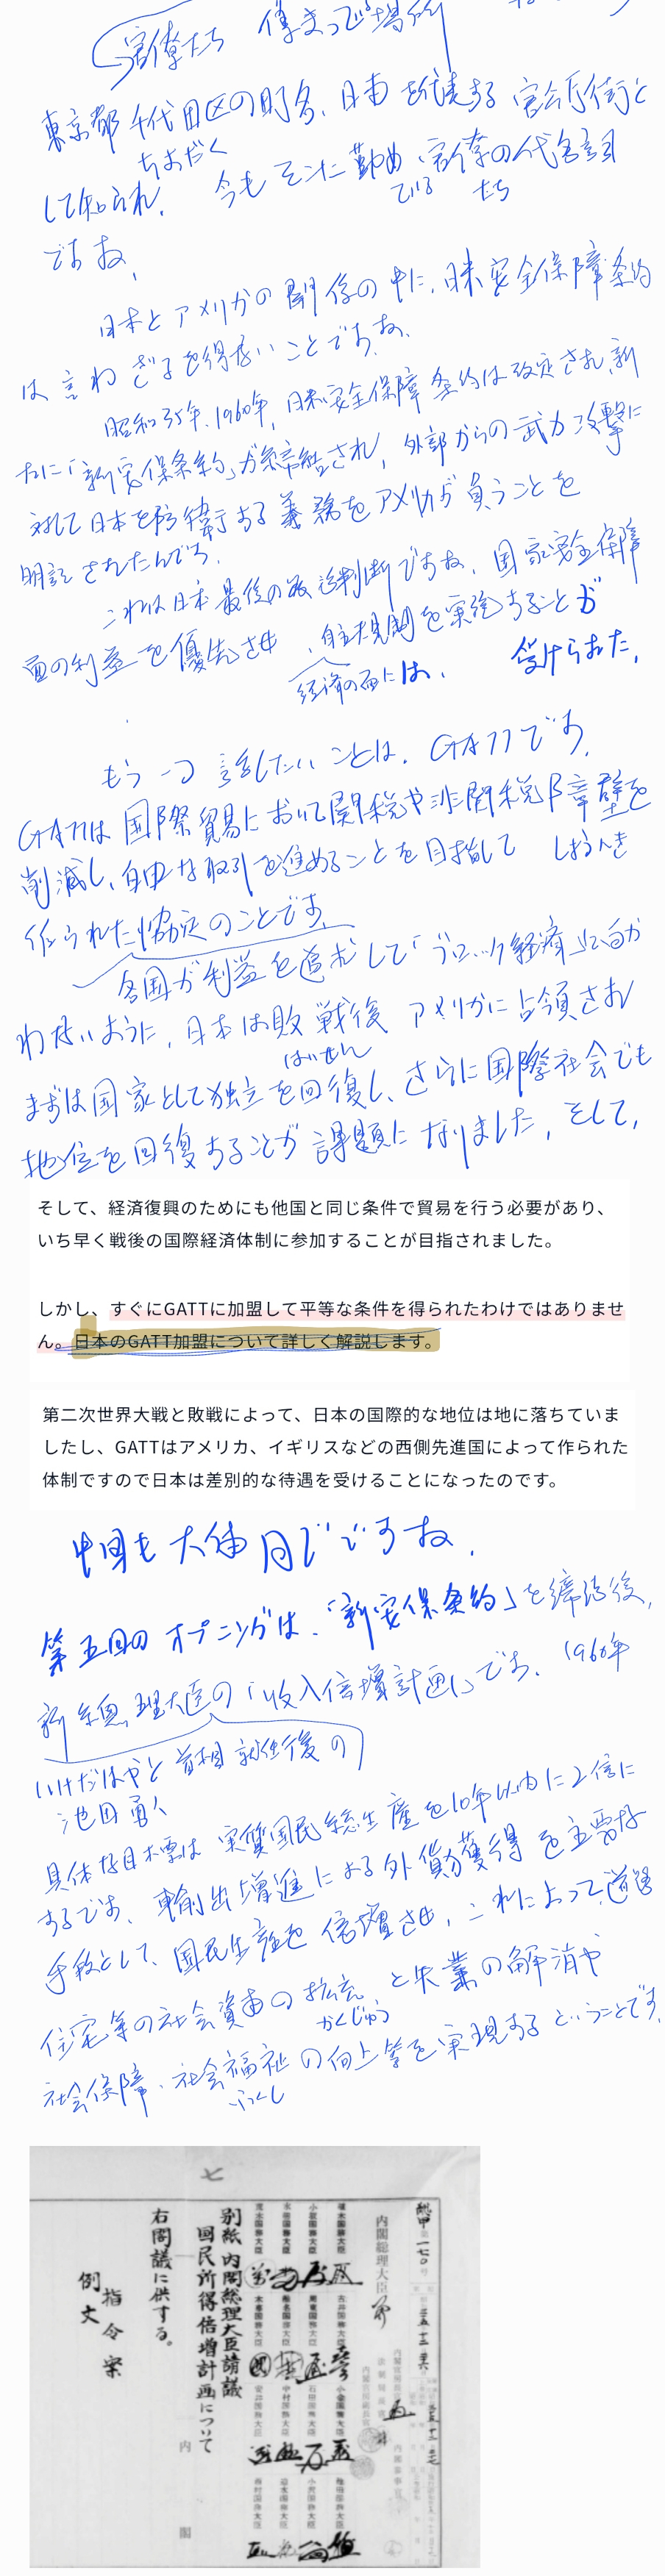 官僚たち 集まって場所
東京都千代田区の町名、日本を代表する官公庁街と
ちよだく
して知られ、今もそこに勤める官僚の代名詞
ている たち
ですね、
日本とアメリカの関係の中に、日米安全保障条約
は言わざるを得ないことですね、
昭和35年、1960年、日米安全保障条約は改定され、新
たに「新安保条約」が締結され、外部からの武力攻撃に
対して日本を防衛する義務をアメリカが負うことを
明記されたんです。
これは日本最後の政治判断ですね、国家安全保障
面の利益を優先させ、を実施することが
経済の面には、 受けられた,
もう一つ話したいことは、GATTです。
GATTは国際貿易において関税や非関税障壁を
削減し、自由な取引を進めることを目指して しょうへき
作られた協定のことです。
各国が利益を追求して「ブロック経済」に向か
わないように、日本は敗戦後 アメリカに占領され
はいせん
まずは国家として独立を回復し、さらに国際社会でも
地位を回復することが課題になりました、そして、
そして、経済復興のためにも他国と同じ条件で貿易を行う必要があり、
いち早く戦後の国際経済体制に参加することが目指されました。
しかし、すぐにGATTに加盟して平等な条件を得られたわけではありませ
ん。日本のGATT加盟について詳しく解説します。
第二次世界大戦と敗戦によって、日本の国際的な地位は地に落ちていま
したし、GATTはアメリカ、イギリスなどの西側先進国によって作られた
体制ですので日本は差別的な待遇を受けることになったのです。
中国も大体同じですね、
第五回のオープニングは、「新安保条約」を締結後、
新総理大臣の「収入倍増計画」です、1960年
いけだはやと首相就任後の
池田勇人
具体な目標は実質国民総生産を10年以内に2倍に
するです、輸出増進による外貨獲得を主要な
手段として、国民生産を倍増させ、これによって、道路
住宅等の社会資本の拡充と失業の解消や
かくじゅう
社会保障、社会福祉の向上等を実現するということです。
ふくし
七
内閣総理大臣
別紙内閣総理大臣請議
国民所得倍増計画について
右閣議に供する。
指令案
例文
内閣